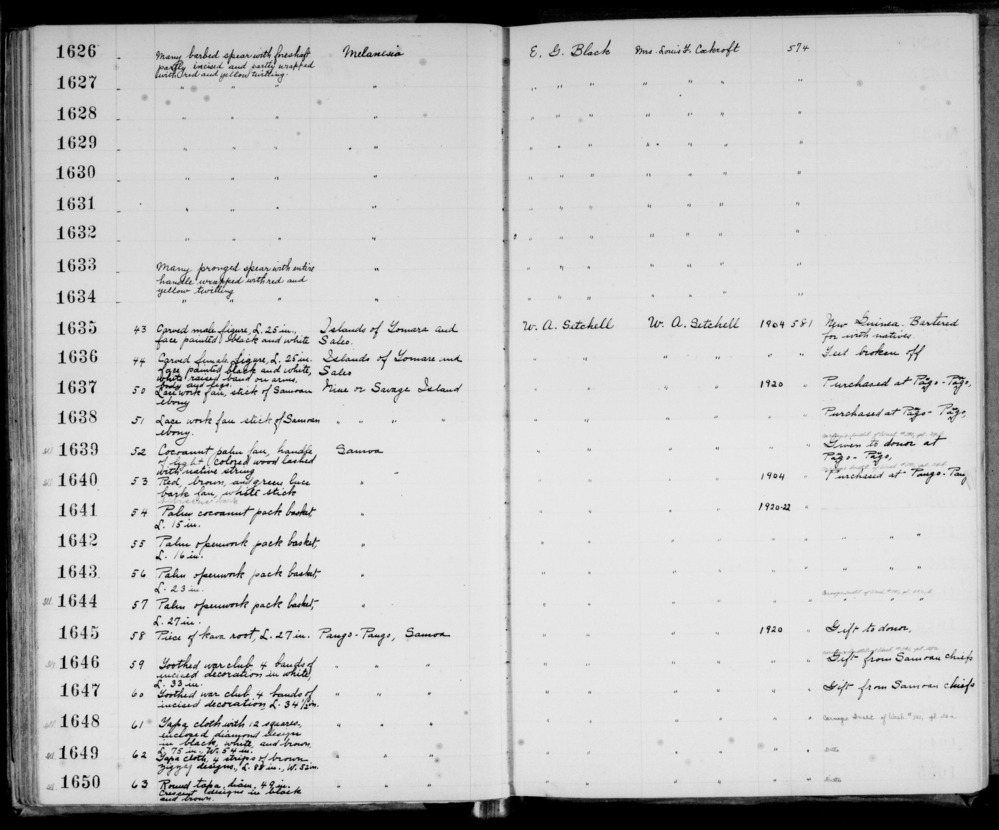 1626 Many barbed spear with foreshaft Melanesia E. G. Black Mrs. Louis F. Cockroft 574
partly incised and partly wrapped
with red and yellow twilling.
1627 " " " " " " " " " " "
1628 " " " " " " " " " " "
1629 " " " " " " " " " " "
1630 " " " " " " " " " " "
1631 " " " " " " " " " " "
1632 " " " " " " " " " " "
1633 Many pronged spear with entire " " " " " " " "
handle wrapped with red and
yellow twilling
1634 " " " " " " " " " " "
1635 43 Carved male figure, L. 25 in., Islands of Gomara and W. A. Setchell W. A. Setchell 1904 581 New Guinea. Bartered
face painted black and white Sales. for with natives
1636 44 Carved female figure, L. 25 in. Islands of Gomara and " " " " " " " Feet broken off
face painted black and white, Sales
white raised band on arms,
body and legs.
1637 50 Lace work fan, stick of Samoan Niue or Savage Island " " " " " " 1920 " Purchased at Pago-Pago,
ebony
1638 51 Lace work fan stick of Samoan " " " " " " " " " " " Purchased at Pago-Pago,
ebony.
1639 52 Cocoanut palm fan, handle Samoa " " " " " " " Given to donor at
of light colored wood lashed Pago-Pago,
with native string
1640 53 Red, brown, and green luce " " " " " " " 1904 " Purchased at Pango-Pang
bark fan, white stick
1641 54 Palm cocoanut pack basket " " " " " " " 1920-22 "
L. 15 in.
1642 55 Palm openwork pack basket, " " " " " " " " " " "
L. 16 in.
1643 56 Palm openwork pack basket, " " " " " " " " " " "
L. 23 in.
1644 57 Palm openwork pack basket, " " " " " " " " " "
L. 27 in.
1645 58 Piece of kava root, L. 27 in. Pango-Pango, Samoa " " " " " " 1920 " Gift to donor.
1646 59 Toothed war club, 4 bands of " " " " " " " " " " Gift from Samoan chiefs
incised decoration in white,
L. 33 in.
1647 60 Toothed war club, 4 bands of " " " " " " " " " " Gift from Samoan chiefs
incised decoration L. 34 1/2 in.
1648 61 Tapa cloth with 12 squares, " " " " " " " " " "
inclosed diamond design
in black, white, and brown,
L. 75 in., W. 54 in.
1649 62 Tapa cloth, 4 strips of brown " " " " " " " " " " Ditto
zigzag designs, L. 88 in., W. 52 in.
1650 63 Round tapa, diam. 49 in. " " " " " " " " " Ditto
Crescent designs in black
and brown.